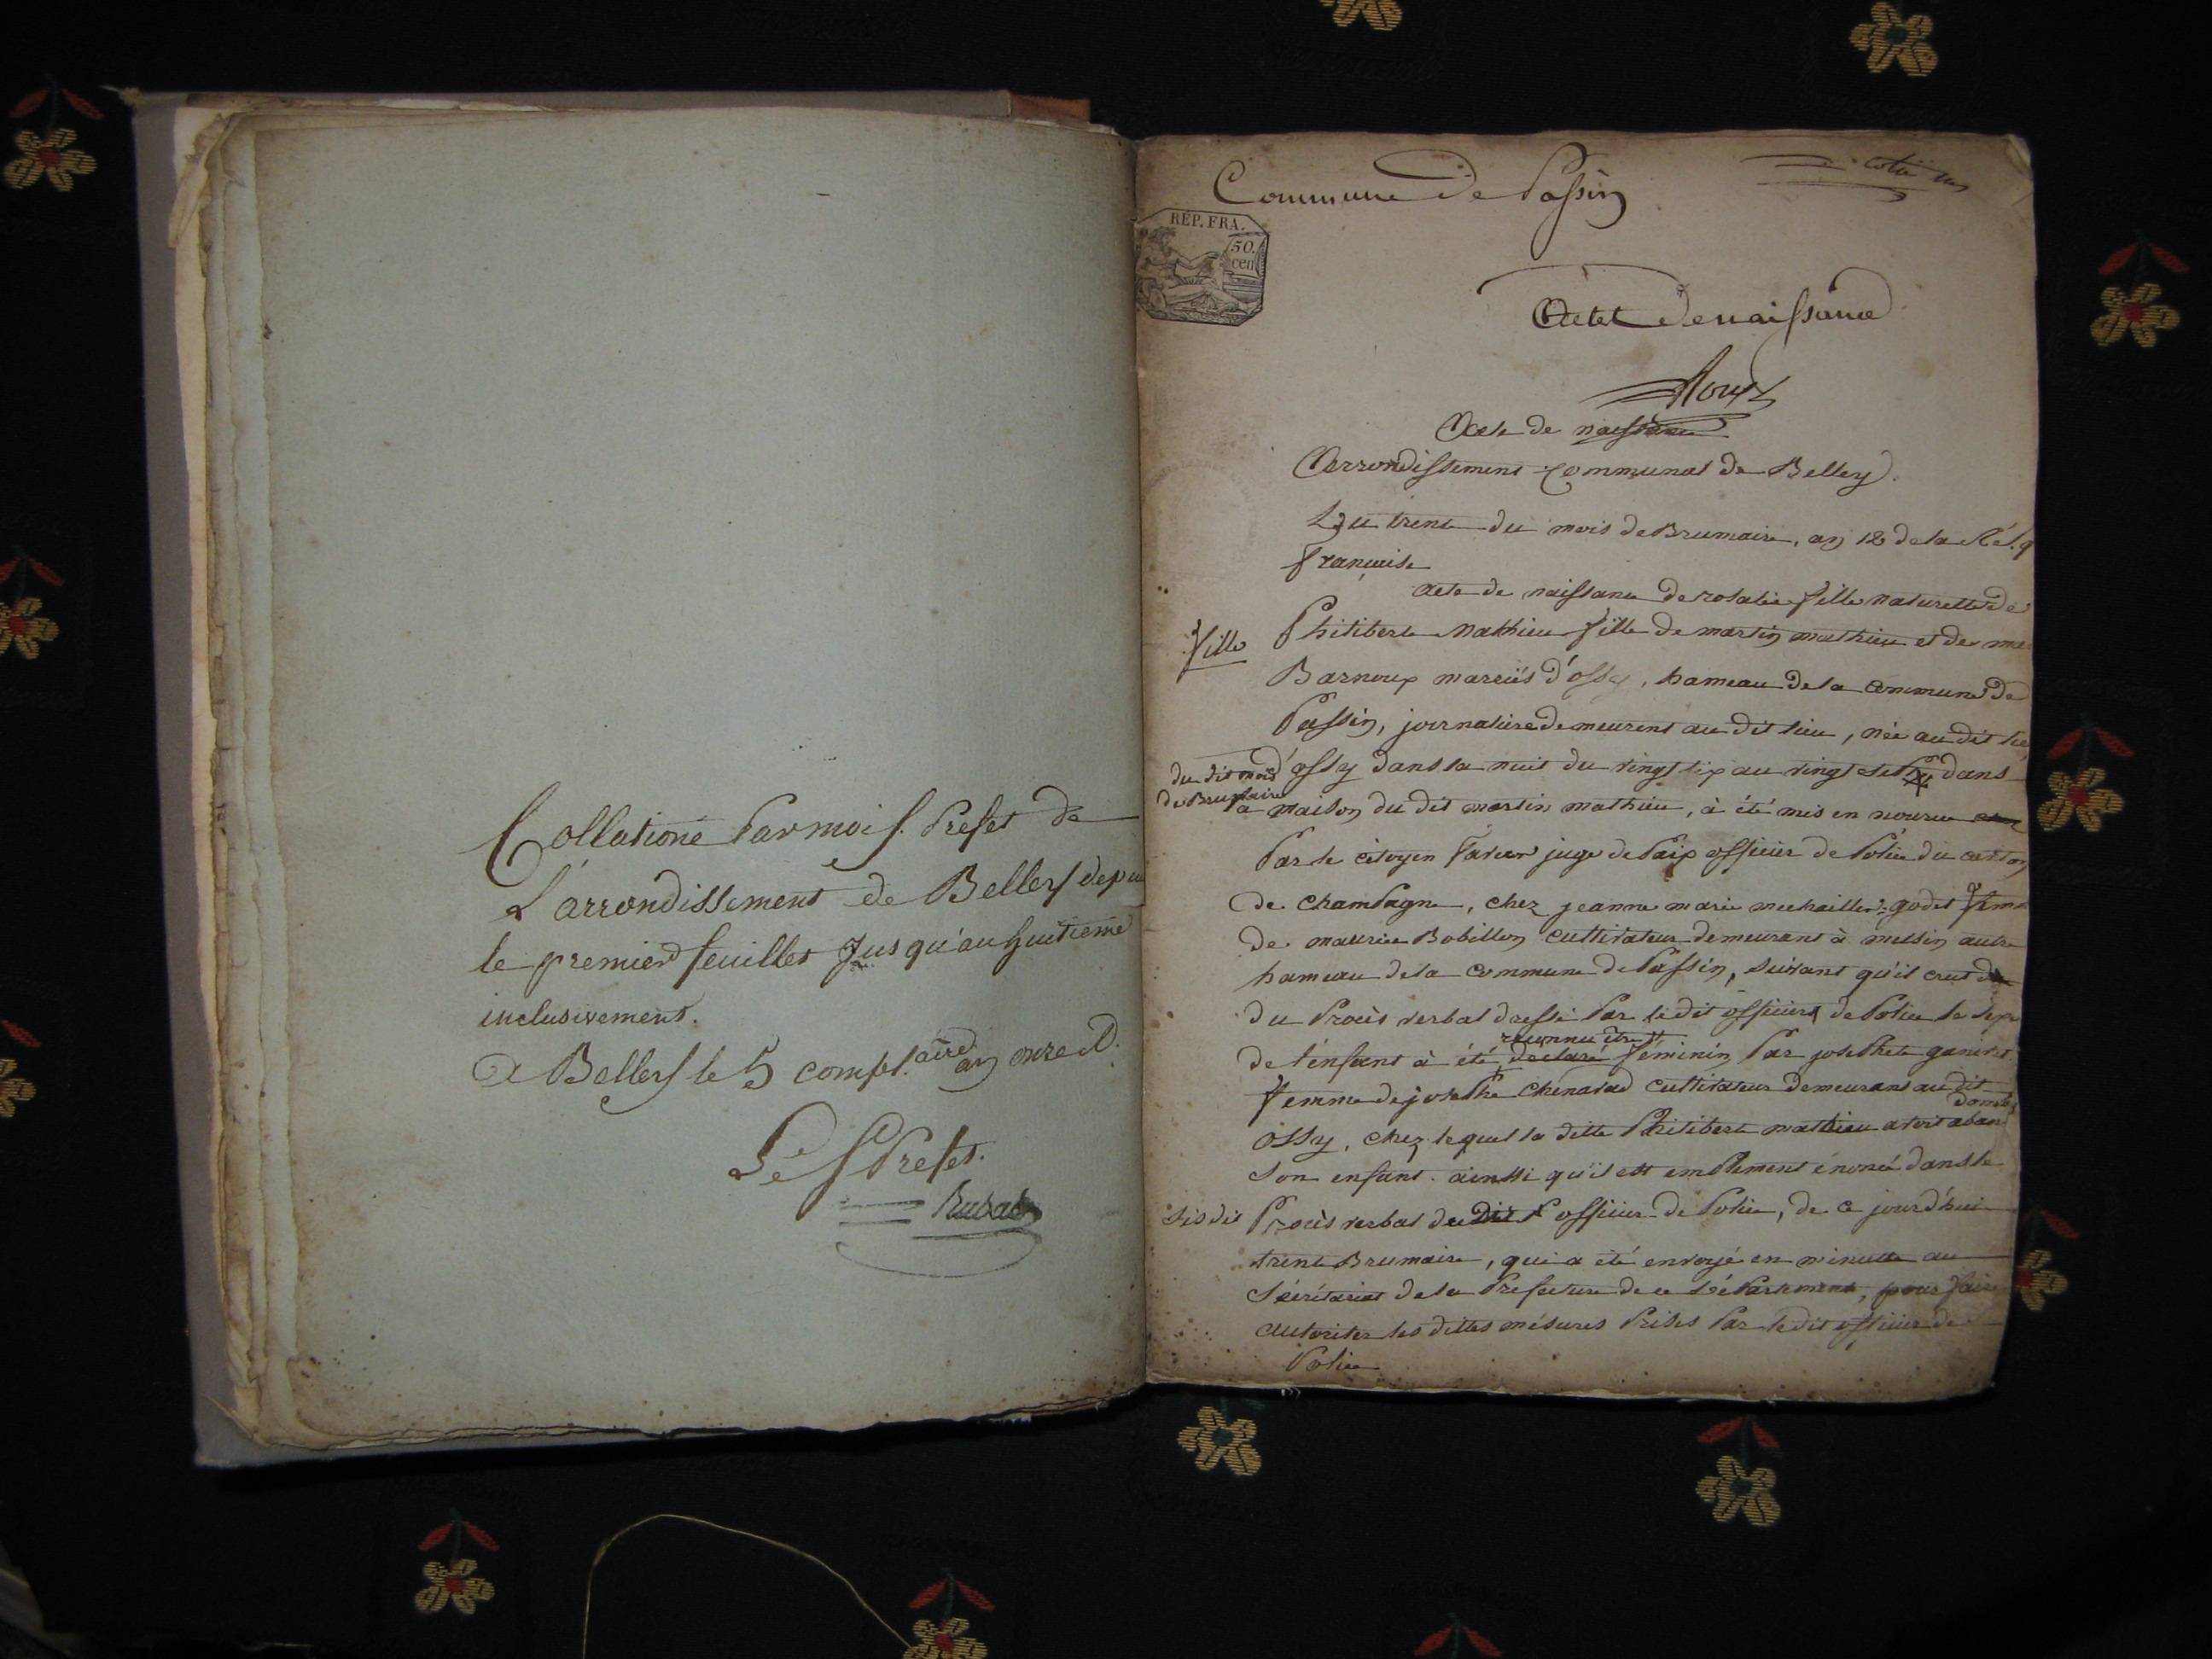 Collationé Par moi S. Prefet de
L'arrondissement de Belley depu
le premier feuillet Jusqu'au huitieme
inclusivement.
A Belley le 5 compl.aire an onze R.
Le S Prefet.
Rubat
Commune De Passin
cotté un
RÉP. FRA.
50
cen
Actes De naissance
Roux
Acte de naissance
Arrondissement Communal de Belley.
Du trente du mois de Brumaire, an 12 de la Rép
française
acte de naissance de rosalie fille naturelle de
fille
Philiberte Mathieu fille de martin mathieu et de ma
Barnoux mariés d'ossy, hameau de la commune de
Passin, journalière demeurent au dit lieu, née au dit lie
du dit mois
de Brumaire
d'ossy dans la nuit du vingt six au vingt sept dans
la maison du dit martin mathieu, à été mis en nourice
Par le citoyen juge de Paix officier de Police du canton
de Champagne, chez jeanne marie godet fem
de maurice Bobillon cultivateur demeurant à messin autre
hameau de la commune de Passin, suivant qu'il crut
du Procès verbal dressé Par le dit officier de Police le sex
reconnu être
de l'enfant à été declaré féminin Par josephte
femme de josephe cultivateur demeurant au dit
donné
ossy, chez lequel la ditte Philiberte mathieu avoit aban
son enfant. ainssi qu'il est emplement énoncé dans le
sus dit
Procès verbal du dit officier de Police, de ce jourd'hui
trente Brumaire, qui a été envoyé en minutte au
Sécrétariat de la Prefecture de ce Département, pour faire
autoriser les dittes mésures Prises Par le dit officier de
Police